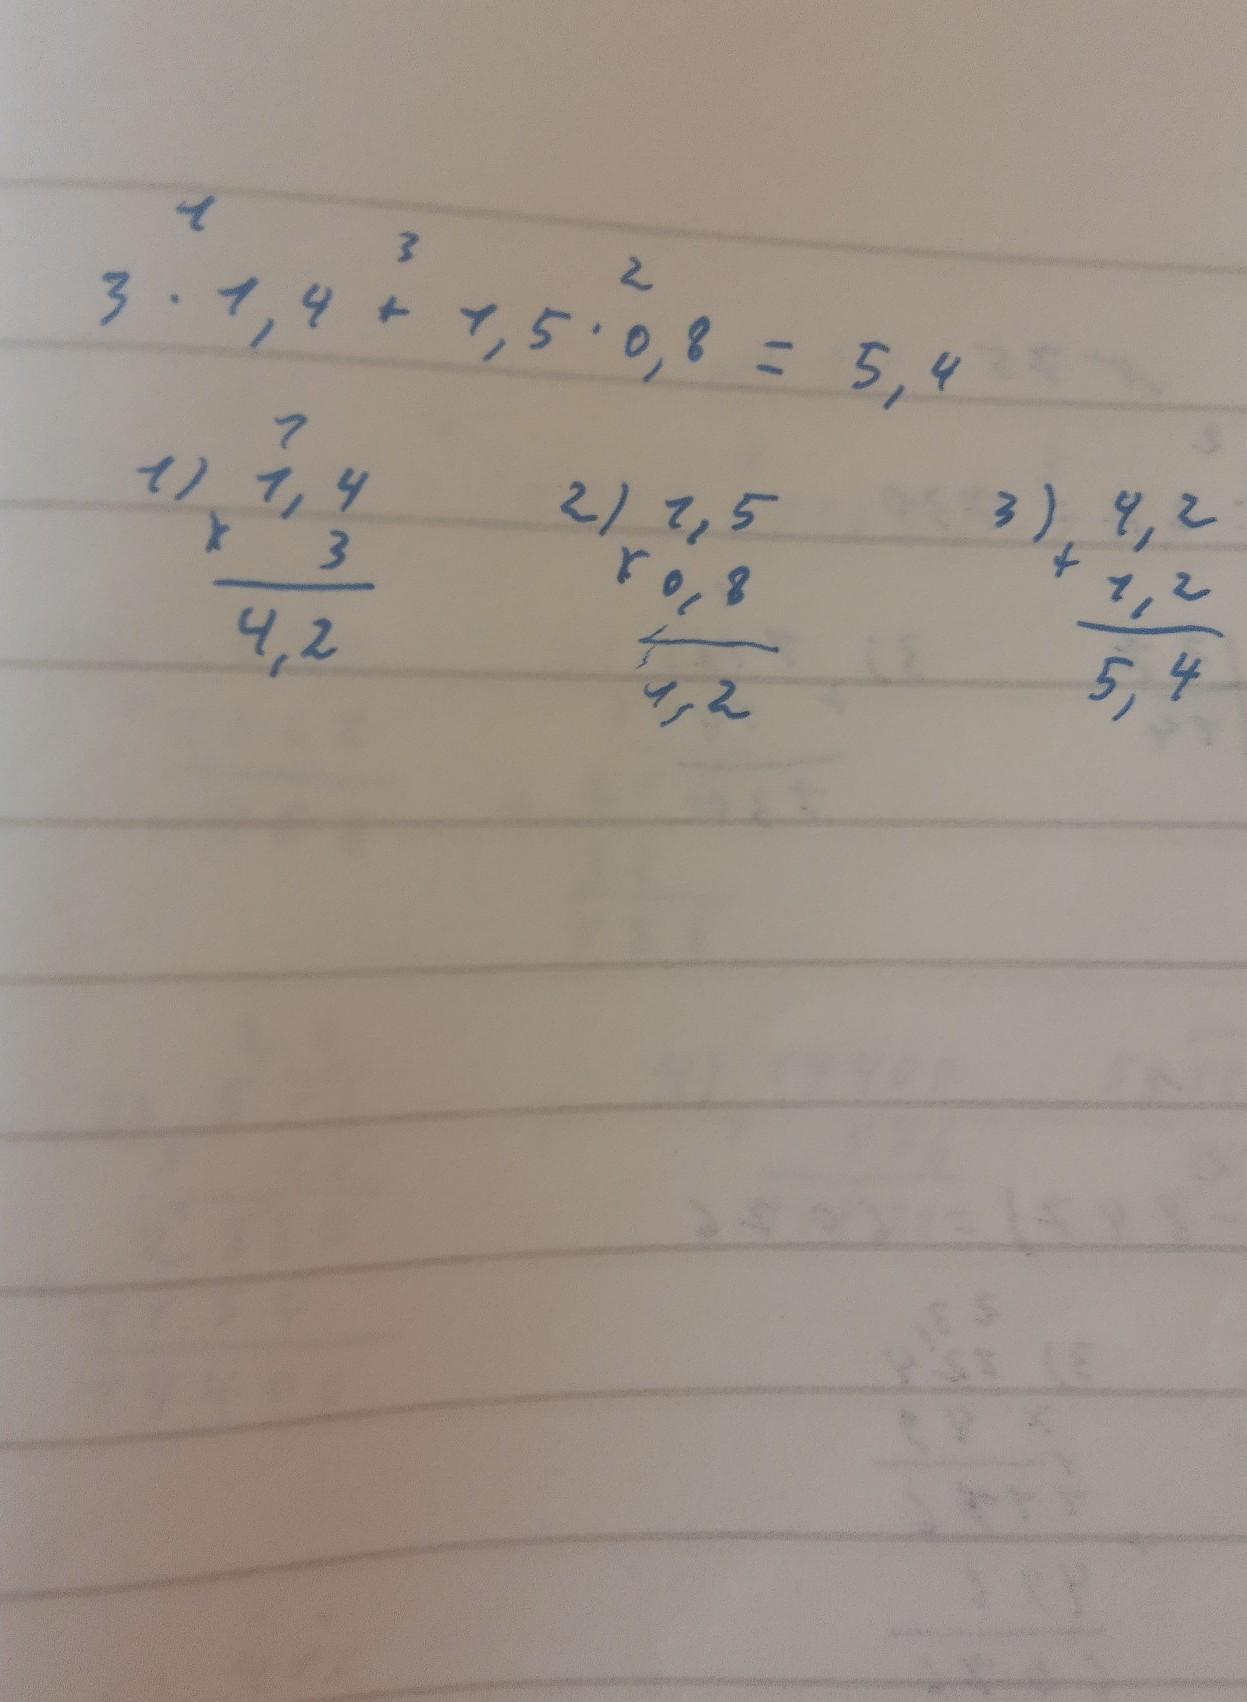 1 3 2
3 · 1,4 + 1,5 · 0,8 = 5,4
1
1) 1,4 2) 1,5 3) 4,2
x 3 x 0,8 + 1,2
4,2 1,2 5,4